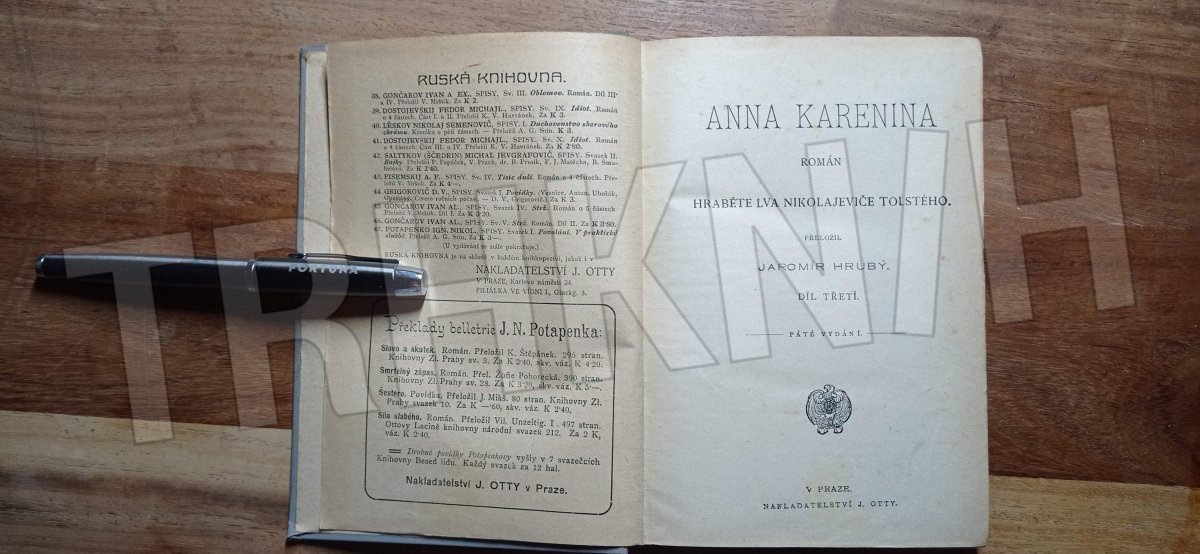 RUSKÁ KNIHOVNA.
38. GONČAROV IVAN A EX., SPISY. Sv. III. Oblomov. Román. Díl III
a IV. Přeložil V. Mrštík. Za K 2.
39. DOSTOJEVSKIJ FEDOR MICHAJL., SPISY. Sv. IX. Idiot. Román
o 4 částech. Část I. a II. Přeložil K. V. Havránek. Za K 3.
40. LĚSKOV NIKOLAJ SEMENOVIČ, SPISY. I. Duchovenstvo sborového
chrámu. Kronika o pěti částech. — Přeložil A. G. Stín. K 3.
41. DOSTOJEVSKIJ FEDOR MICHAJL., SPISY. Sv. X. Idiot. Román
o 4 částech. Část III. a IV. Přeložil K. V. Havránek. Za K 2·80.
42. SALTYKOV (ŠČEDRIN) MICHAL JEVGRAFOVIČ, SPISY. Svazek II.
Bajky. Přeložili P. Papáček, V. Prách, dr. B. Prusík, F. J. Matěcha, B. Sma-
hetová. Za K 2·40.
43. PISEMSKIJ A. F., SPISY. Sv. IV. Tisíc duší. Román o 4 částech. Pře-
ložil V. Mrštík. Za K 4·—.
44. GRIGOROVIČ D. V., SPISY. Svazek I. Povídky. (Vesnice. Anton. Ubožák.
Čtvero ročních počasí. — D. V. Grigorovič.) Za K 3.
45. GONČAROV IVAN AL., SPISY. Svazek IV. Strž. Román o 5 částech
Přeložil V. Mrštík. Díl I. Za K 3·20.
46. GONČAROV IVAN AL., SPISY. Sv. V. Strž. Román. Díl II. Za K 3·80.
47. POTAPENKO IGN. NIKOL., SPISY. Svazek I. Povolání. V praktické
službě. Přeložil A. G. Stín. Za K 3·—.
(U vydávání se stále pokračuje.)
RUSKÁ KNIHOVNA je na skladě v každém knihkupectví, jakož i v
NAKLADATELSTVÍ J. OTTY
V PRAZE, Karlovo náměstí 34.
FILIÁLKA VE VÍDNI I., Gluckg. 3.
Překlady belletrie J. N. Potapenka:
Slovo a skutek. Román. Přeložil K. Štěpánek. 296 stran.
Knihovny Zl. Prahy sv. 3. Za K 2·40, skv. váz. K 4·20.
Smrtelný zápas. Román. Přel. Žofie Pohorecká. 390 stran.
Knihovny Zl. Prahy sv. 28. Za K 3·20, skv. váz. K 5·—.
Šestero. Povídka. Přeložil J. Mikš. 80 stran. Knihovny Zl.
Prahy svazek 10. Za K —·60, skv. váz. K 2·40.
Síla slabého. Román. Přeložil Vil. Unzeitig. I. 497 stran.
Ottovy Laciné knihovny národní svazek 212. Za 2 K,
váz. K 2·40.
Drobné povídky Potapenkovy vyšly v 7 svazečcích
Knihovny Besed lidu. Každý svazek za 12 hal.
Nakladatelství J. OTTY v Praze.
FORTUNA
ANNA KARENINA
ROMÁN
HRABĚTE LVA NIKOLAJEVIČE TOLSTÉHO.
PŘELOŽIL
JAROMÍR HRUBÝ.
DÍL TŘETÍ.
PÁTÉ VYDÁNÍ.
V PRAZE.
NAKLADATELSTVÍ J. OTTY.
TRHKNIH